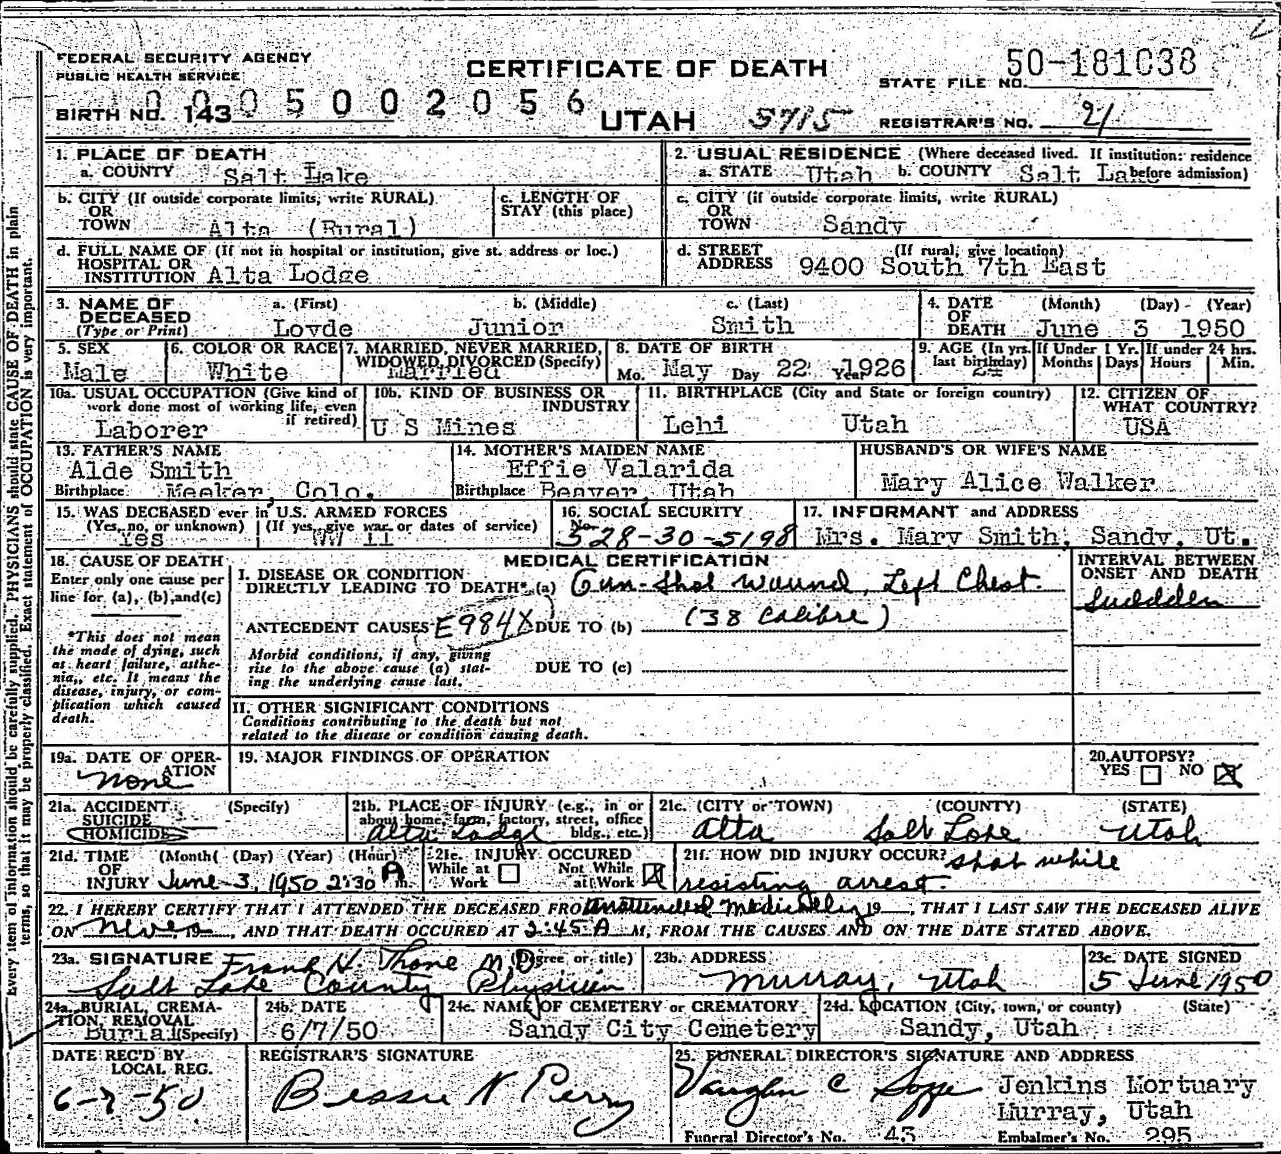 FEDERAL SECURITY AGENCY
PUBLIC HEALTH SERVICE
CERTIFICATE OF DEATH
STATE FILE NO. 50-181038
BIRTH NO. 143 0005002056
UTAH 5715
REGISTRAR'S NO. 21
1. PLACE OF DEATH
a. COUNTY Salt Lake
2. USUAL RESIDENCE (Where deceased lived. If institution: residence before admission)
a. STATE Utah b. COUNTY Salt Lake
b. CITY (If outside corporate limits, write RURAL) OR TOWN Alta (Rural)
c. LENGTH OF STAY (this place)
c. CITY (If outside corporate limits, write RURAL) OR TOWN Sandy
d. FULL NAME OF (If not in hospital or institution, give st. address or loc.) HOSPITAL OR INSTITUTION Alta Lodge
d. STREET ADDRESS (If rural, give location) 9400 South 7th East
3. NAME OF DECEASED (Type or Print)
a. (First) b. (Middle) c. (Last)
Loyde Junior Smith
4. DATE OF DEATH (Month) (Day) (Year)
June 3 1950
5. SEX Male
6. COLOR OR RACE White
7. MARRIED, NEVER MARRIED, WIDOWED, DIVORCED (Specify) Married
8. DATE OF BIRTH
Mo. May Day 22 Year 1926
9. AGE (In yrs. last birthday) 24
If Under 1 Yr. Months Days
If under 24 hrs. Hours Min.
10a. USUAL OCCUPATION (Give kind of work done most of working life, even if retired) Laborer
10b. KIND OF BUSINESS OR INDUSTRY U S Mines
11. BIRTHPLACE (City and State or foreign country) Lehi Utah
12. CITIZEN OF WHAT COUNTRY? USA
13. FATHER'S NAME Alde Smith
Birthplace Meeker, Colo.
14. MOTHER'S MAIDEN NAME Effie Valarida
Birthplace Beaver, Utah
HUSBAND'S OR WIFE'S NAME Mary Alice Walker
15. WAS DECEASED ever in U.S. ARMED FORCES
(Yes, no, or unknown) (If yes, give war or dates of service)
Yes WW II
16. SOCIAL SECURITY No. 528-30-5198
17. INFORMANT and ADDRESS Mrs. Mary Smith, Sandy, Ut.
18. CAUSE OF DEATH
Enter only one cause per line for (a), (b), and (c)
*This does not mean the mode of dying, such as heart failure, asthenia, etc. It means the disease, injury, or complication which caused death.
MEDICAL CERTIFICATION
INTERVAL BETWEEN ONSET AND DEATH
I. DISEASE OR CONDITION DIRECTLY LEADING TO DEATH* (a) Gun-shot wound, Left Chest. Suddden
ANTECEDENT CAUSES E984X DUE TO (b) (38 Calibre)
Morbid conditions, if any, giving rise to the above cause (a) stating the underlying cause last.
DUE TO (c)
II. OTHER SIGNIFICANT CONDITIONS
Conditions contributing to the death but not related to the disease or condition causing death.
19a. DATE OF OPERATION none
19. MAJOR FINDINGS OF OPERATION
20. AUTOPSY? YES NO X
21a. ACCIDENT SUICIDE HOMICIDE (Specify)
21b. PLACE OF INJURY (e.g., in or about home, farm, factory, street, office bldg., etc.) Alta Lodge
21c. (CITY or TOWN) (COUNTY) (STATE)
Alta Salt Lake Utah
21d. TIME OF INJURY (Month) (Day) (Year) (Hour)
June-3, 1950 2:30 A m.
21e. INJURY OCCURED
While at Work Not While at Work X
21f. HOW DID INJURY OCCUR? shot while resisting arrest.
22. I HEREBY CERTIFY THAT I ATTENDED THE DECEASED FROM unattended medically 19 , THAT I LAST SAW THE DECEASED ALIVE
ON never , AND THAT DEATH OCCURED AT 2:45 A M, FROM THE CAUSES AND ON THE DATE STATED ABOVE.
23a. SIGNATURE (Degree or title) Frank H. Thone M.D.
Salt Lake County Physician
23b. ADDRESS Murray, Utah
23c. DATE SIGNED 5 June 1950
24a. BURIAL, CREMATION, REMOVAL (Specify) Burial
24b. DATE 6/7/50
24c. NAME OF CEMETERY OR CREMATORY Sandy City Cemetery
24d. LOCATION (City, town, or county) (State) Sandy, Utah
DATE REC'D BY LOCAL REG. 6-7-50
REGISTRAR'S SIGNATURE Bessie N Perry
25. FUNERAL DIRECTOR'S SIGNATURE AND ADDRESS
Vaughn C Jenkins Mortuary
Murray, Utah
Funeral Director's No. 43
Embalmer's No. 295
Every item of information should be carefully supplied. PHYSICIANS should state CAUSE OF DEATH in plain
terms, so that it may be properly classified. Exact statement of OCCUPATION is very important.